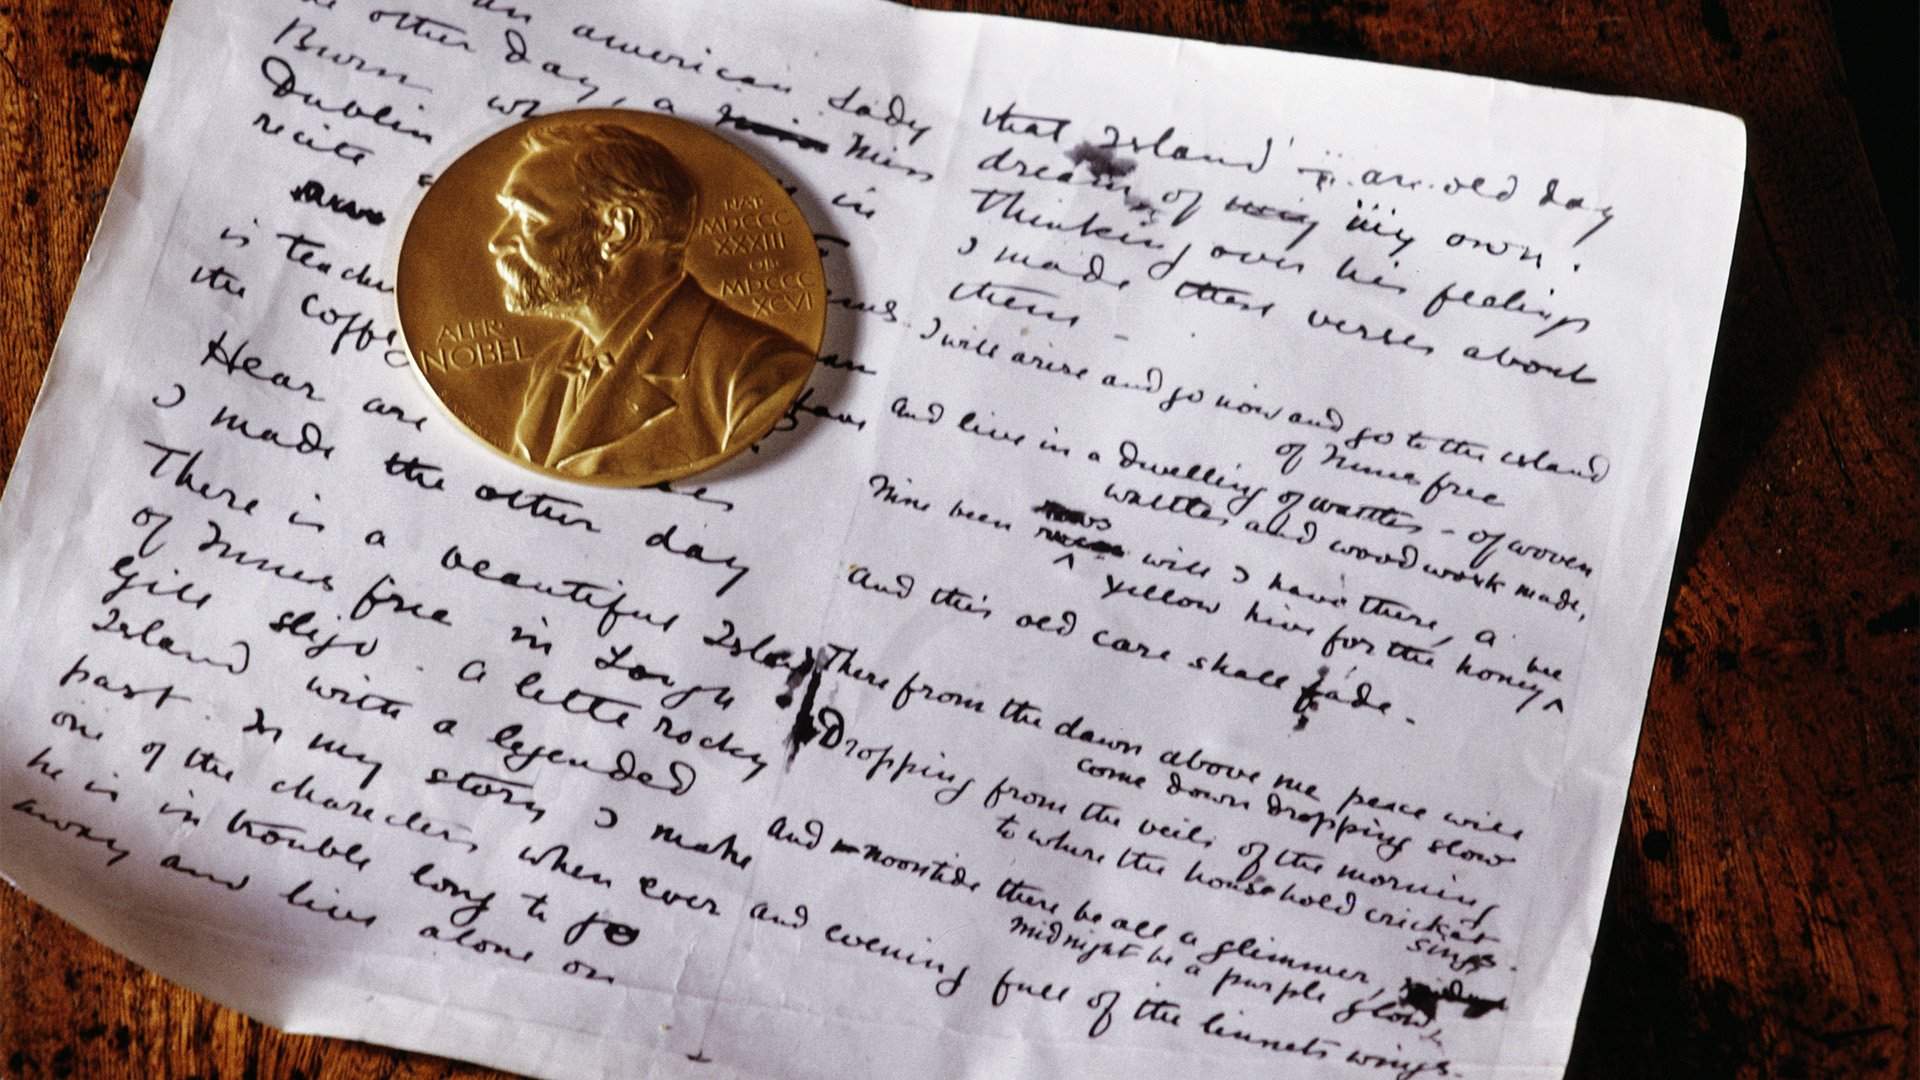 an american Lady
the other day, a Miss
Burn
Dublin in
recite
is teaching
the coffee
Hear are
I made the other day
There is a beautiful Island
of Innis free in Lough
Gill sligo. A little rocky
Island with a legended
past. In my story I make
one of the characters when ever
he is in trouble long to go
away and live alone on
ALFR·
NOBEL
NAT
MDCCC
XXXIII
OB
MDCCC
XCVI
that Island – an old day
dream of my own.
Thinking over his feelings
I made these verses about
them –
I will arise and go now and go to the island
of Innis free
And live in a dwelling of wattles – of woven
wattles and wood work made,
Nine bean rows will I have there, a
yellow hive for the honey bee
And this old care shall fade.
There from the dawn above me peace will
come down dropping slow
Dropping from the veils of the morning
to where the household cricket
sings.
And noontide there be all a glimmer,
midnight be a purple glow,
and evening full of the linnets wings.